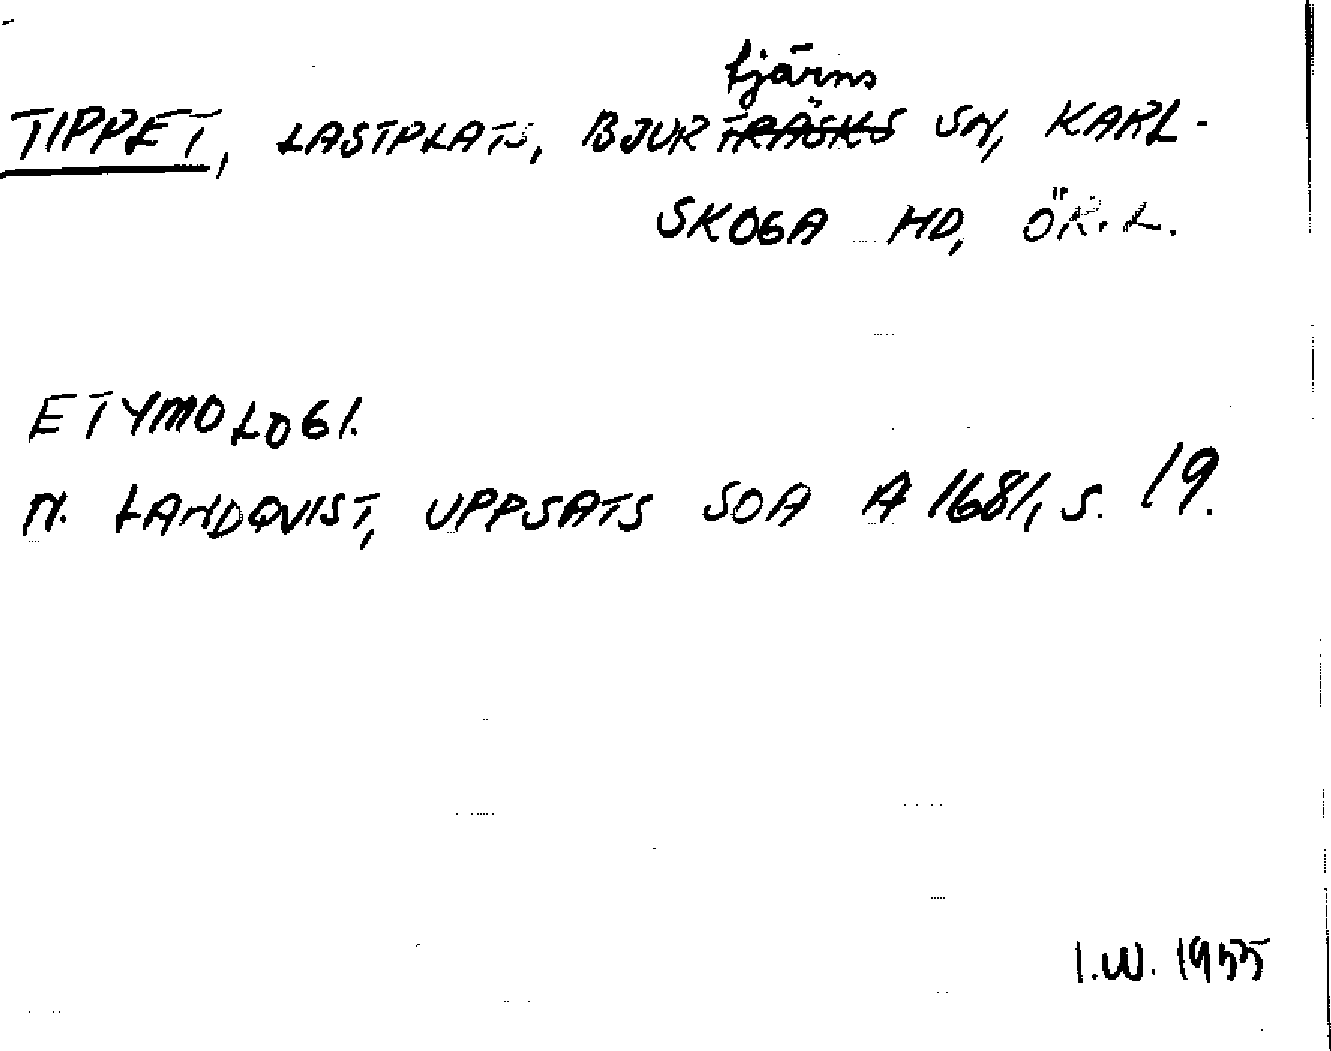 tjärns
TIPPET, LASTPLATS, BJURTRÄSKS SN, KARL-
SKOGA HD, ÖR. L.
ETYMOLOGI.
N. LANDQVIST, UPPSATS SOA A 1681, S. 19.
I.W. 1955